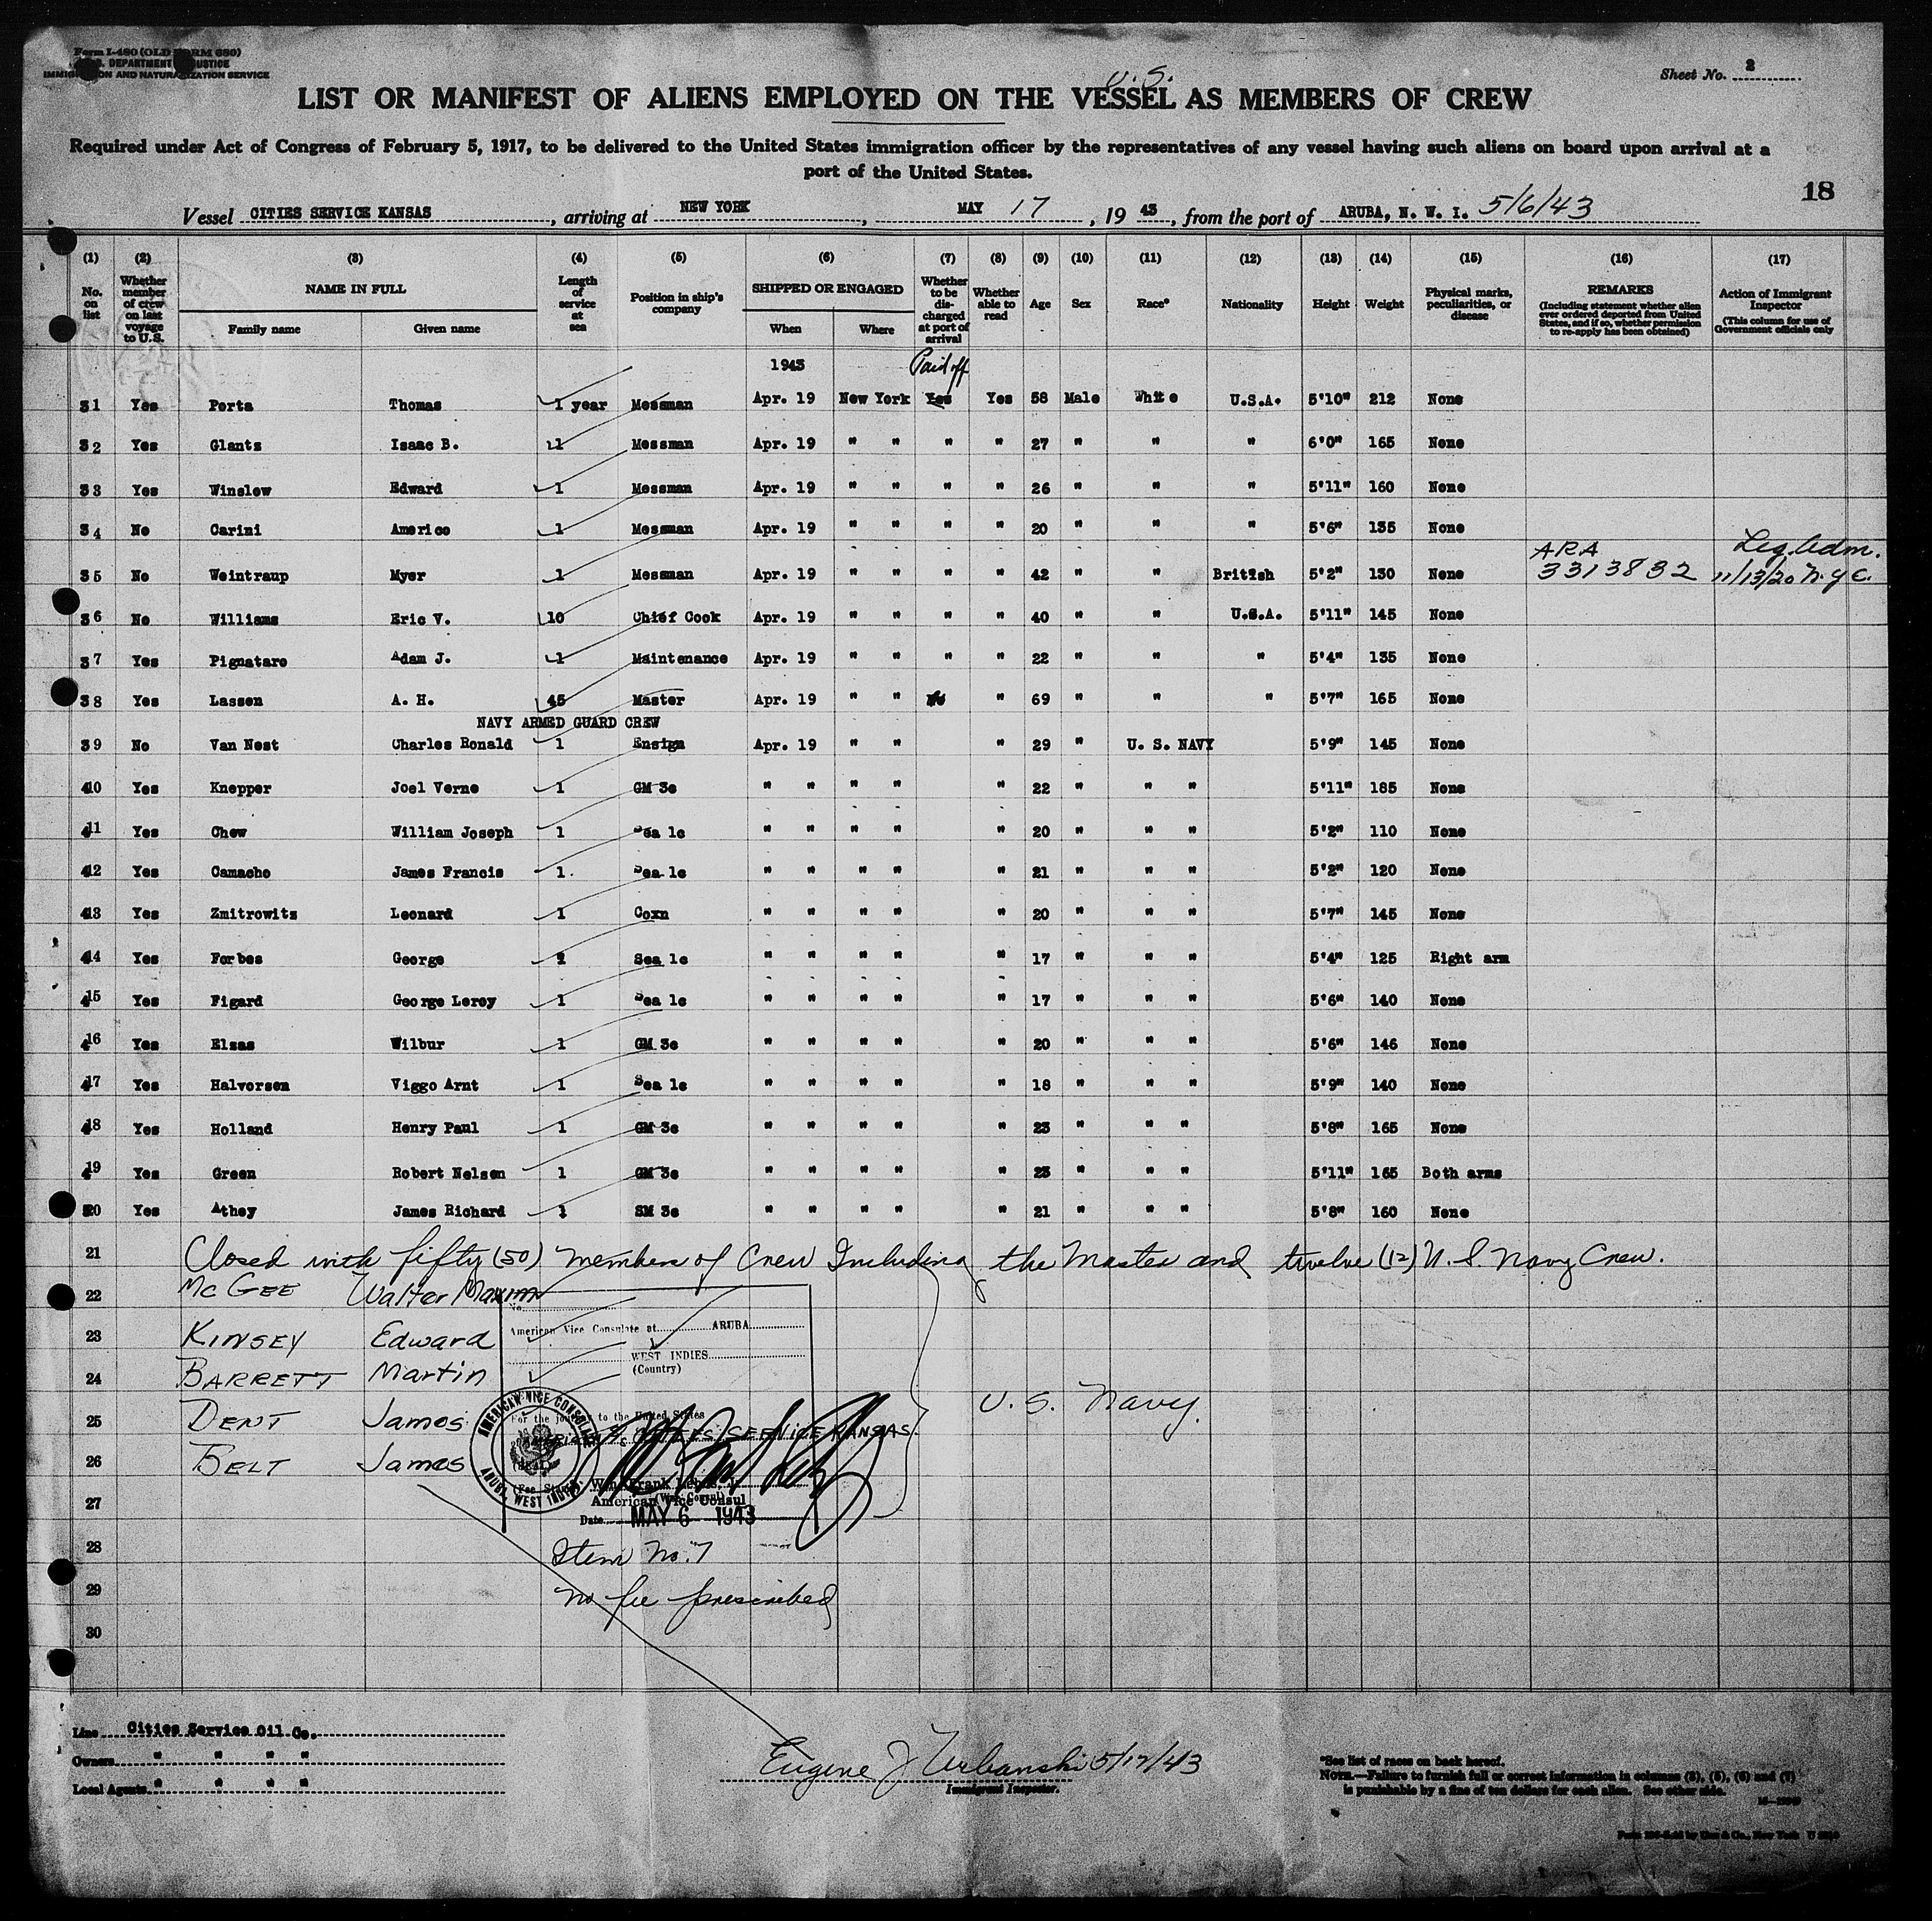 Form I-480 (OLD FORM 680)
U.S. DEPARTMENT OF JUSTICE
IMMIGRATION AND NATURALIZATION SERVICE
Sheet No. 2
U. S.
LIST OR MANIFEST OF ALIENS EMPLOYED ON THE VESSEL AS MEMBERS OF CREW
Required under Act of Congress of February 5, 1917, to be delivered to the United States immigration officer by the representatives of any vessel having such aliens on board upon arrival at a
port of the United States.
18
Vessel CITIES SERVICE KANSAS, arriving at NEW YORK, MAY 17, 19 43, from the port of ARUBA, N. W. I. 5/6/43
(1) (2) (3) (4) (5) (6) (7) (8) (9) (10) (11) (12) (13) (14) (15) (16) (17)
No. on list Whether member of crew on last voyage to U.S. NAME IN FULL Family name Given name Length of service at sea Position in ship's company SHIPPED OR ENGAGED When Where Whether to be discharged at port of arrival Whether able to read Age Sex Race* Nationality Height Weight Physical marks, peculiarities, or disease REMARKS (Including statement whether alien ever ordered deported from United States, and if so, whether permission to re-apply has been obtained) Action of Immigrant Inspector (This column for use of Government officials only
1943 Paid off
31 Yes Porta Thomas 1 year Messman Apr. 19 New York Yes Yes 58 Male White U.S.A. 5'10" 212 None
32 Yes Glantz Isaac B. 1 Messman Apr. 19 " " " " 27 " " " 6'0" 165 None
33 Yes Winslow Edward 1 Messman Apr. 19 " " " " 26 " " " 5'11" 160 None
34 No Carini Americo 1 Messman Apr. 19 " " " " 20 " " " 5'6" 135 None
35 No Weintraup Myer 1 Messman Apr. 19 " " " " 42 " " British 5'2" 130 None ARA 3313832 Leg. Adm. 11/13/20 N.Y.C.
36 No Williams Eric V. 10 Chief Cook Apr. 19 " " " " 40 " " U.S.A. 5'11" 145 None
37 Yes Pignataro Adam J. 1 Maintenance Apr. 19 " " " " 22 " " " 5'4" 135 None
38 Yes Lassen A. H. 45 Master Apr. 19 " " No " 69 " " " 5'7" 165 None
NAVY ARMED GUARD CREW
39 No Van Nest Charles Ronald 1 Ensign Apr. 19 " " " 29 " U. S. NAVY 5'9" 145 None
410 Yes Knepper Joel Verne 1 GM 3c " " " " " 22 " " " 5'11" 185 None
411 Yes Chew William Joseph 1 Sea 1c " " " " " 20 " " " 5'2" 110 None
412 Yes Camacho James Francis 1. Sea 1c " " " " " 21 " " " 5'2" 120 None
413 Yes Zmitrowitz Leonard 1 Coxn " " " " " 20 " " " 5'7" 145 None
414 Yes Forbes George 1 Sea 1c " " " " " 17 " " " 5'4" 125 Right arm
415 Yes Figard George Leroy 1 Sea 1c " " " " " 17 " " " 5'6" 140 None
416 Yes Elsas Wilbur 1 GM 3c " " " " " 20 " " " 5'6" 146 None
417 Yes Halvorsen Viggo Arnt 1 Sea 1c " " " " " 18 " " " 5'9" 140 None
418 Yes Holland Henry Paul 1 GM 3c " " " " " 23 " " " 5'8" 165 None
419 Yes Green Robert Nelson 1 GM 3c " " " " " 23 " " " 5'11" 165 Both arms
520 Yes Athey James Richard 1 SM 3c " " " " " 21 " " " 5'8" 160 None
21 Closed with fifty (50) members of Crew Including the Master and twelve (12) U. S. Navy Crew.
22 Mc GEE Walter
23 KINSEY Edward
24 BARRETT Martin
25 DENT James
26 BELT James
27
28
29
30
U. S. Navy.
No.
American Vice Consulate at ARUBA
WEST INDIES
(Country)
For the journey to the United States
CITIES SERVICE KANSAS.
AMERICAN VICE CONSULATE
ARUBA, WEST INDIES
American Vice Consul
Date MAY 6 1943
Item No. 7
no fee prescribed
Line Cities Service Oil Co.
Owners " " " "
Local Agents " " " "
Eugene J Urbanski 5/17/43
Immigrant Inspector.
*See list of races on back hereof.
NOTE.—Failure to furnish full or correct information in columns (3), (5), (6) and (7)
is punishable by a fine of ten dollars for each alien. See other side.